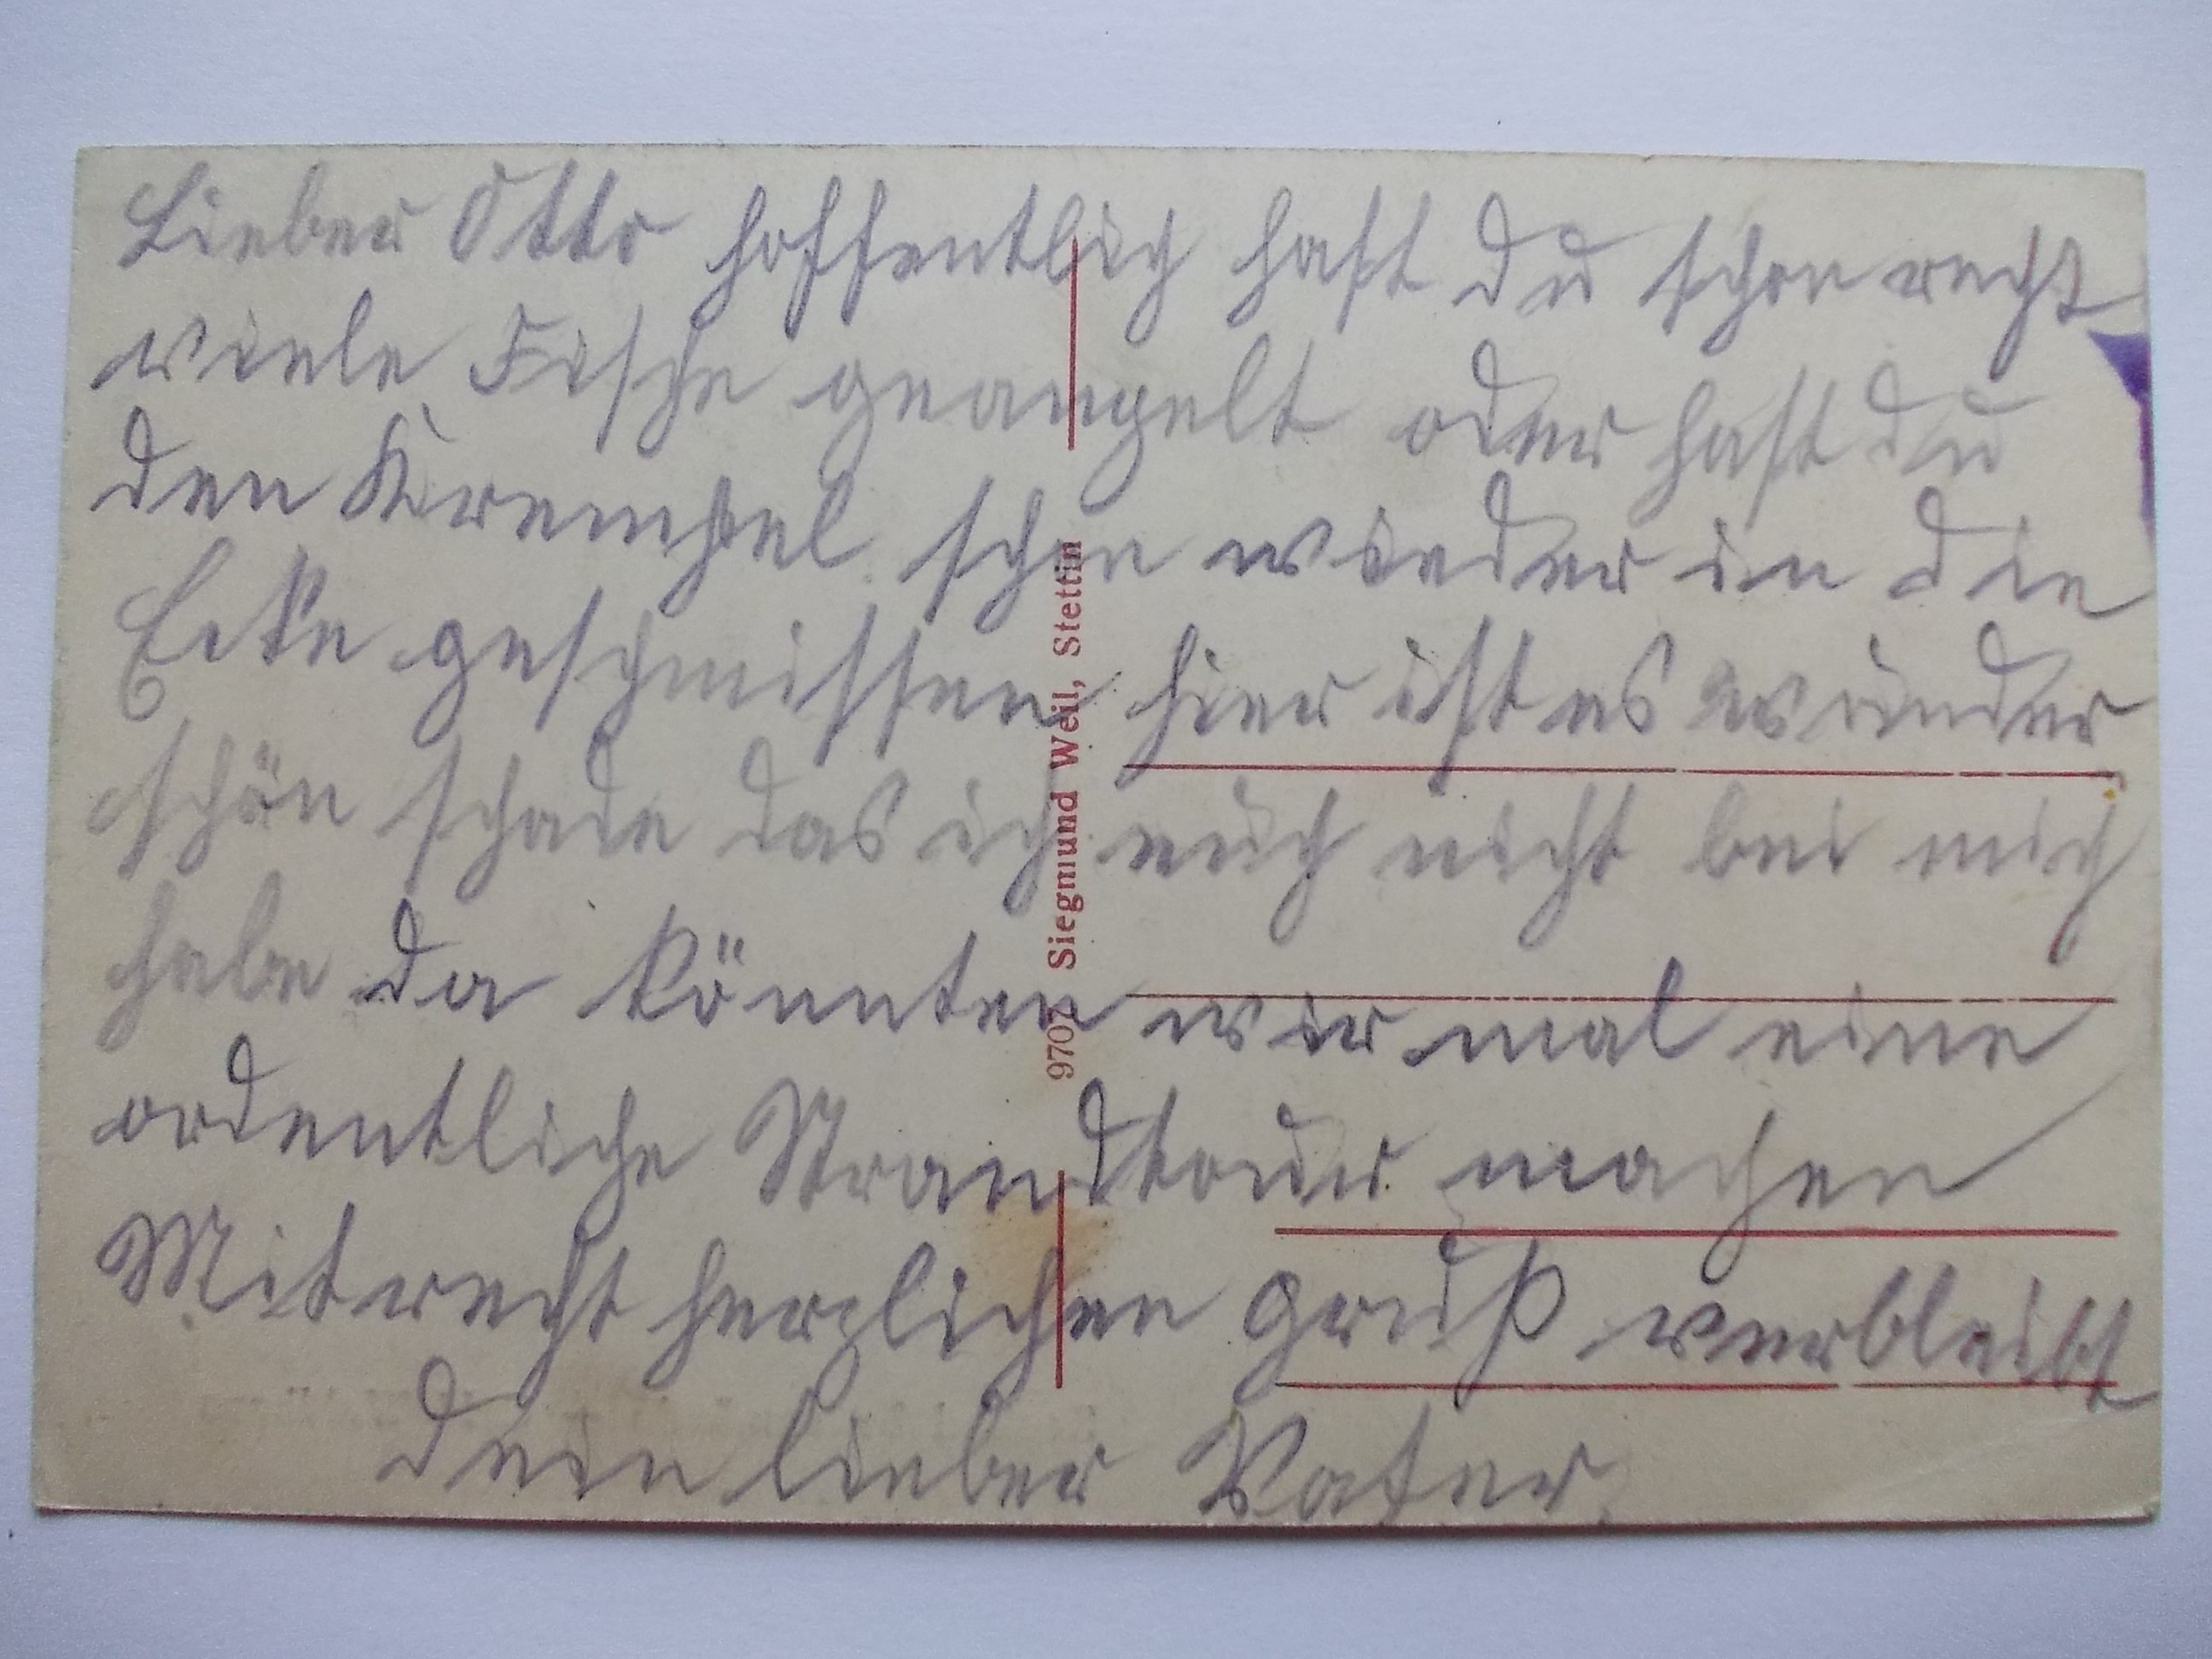 Lieber Otto hoffentlich hast du schon recht
viele Fische geangelt oder hast du
den Krempel schon wieder in die
Ecke geschmissen hier ist es wunder
schön schade das ich euch nicht bei mich
habe da könnten wir mal eine
ordentliche Strandtour machen
Mit recht herzlichen Gruß verbleibt
dein lieber Vater
9707 Siegmund Weil, Stettin